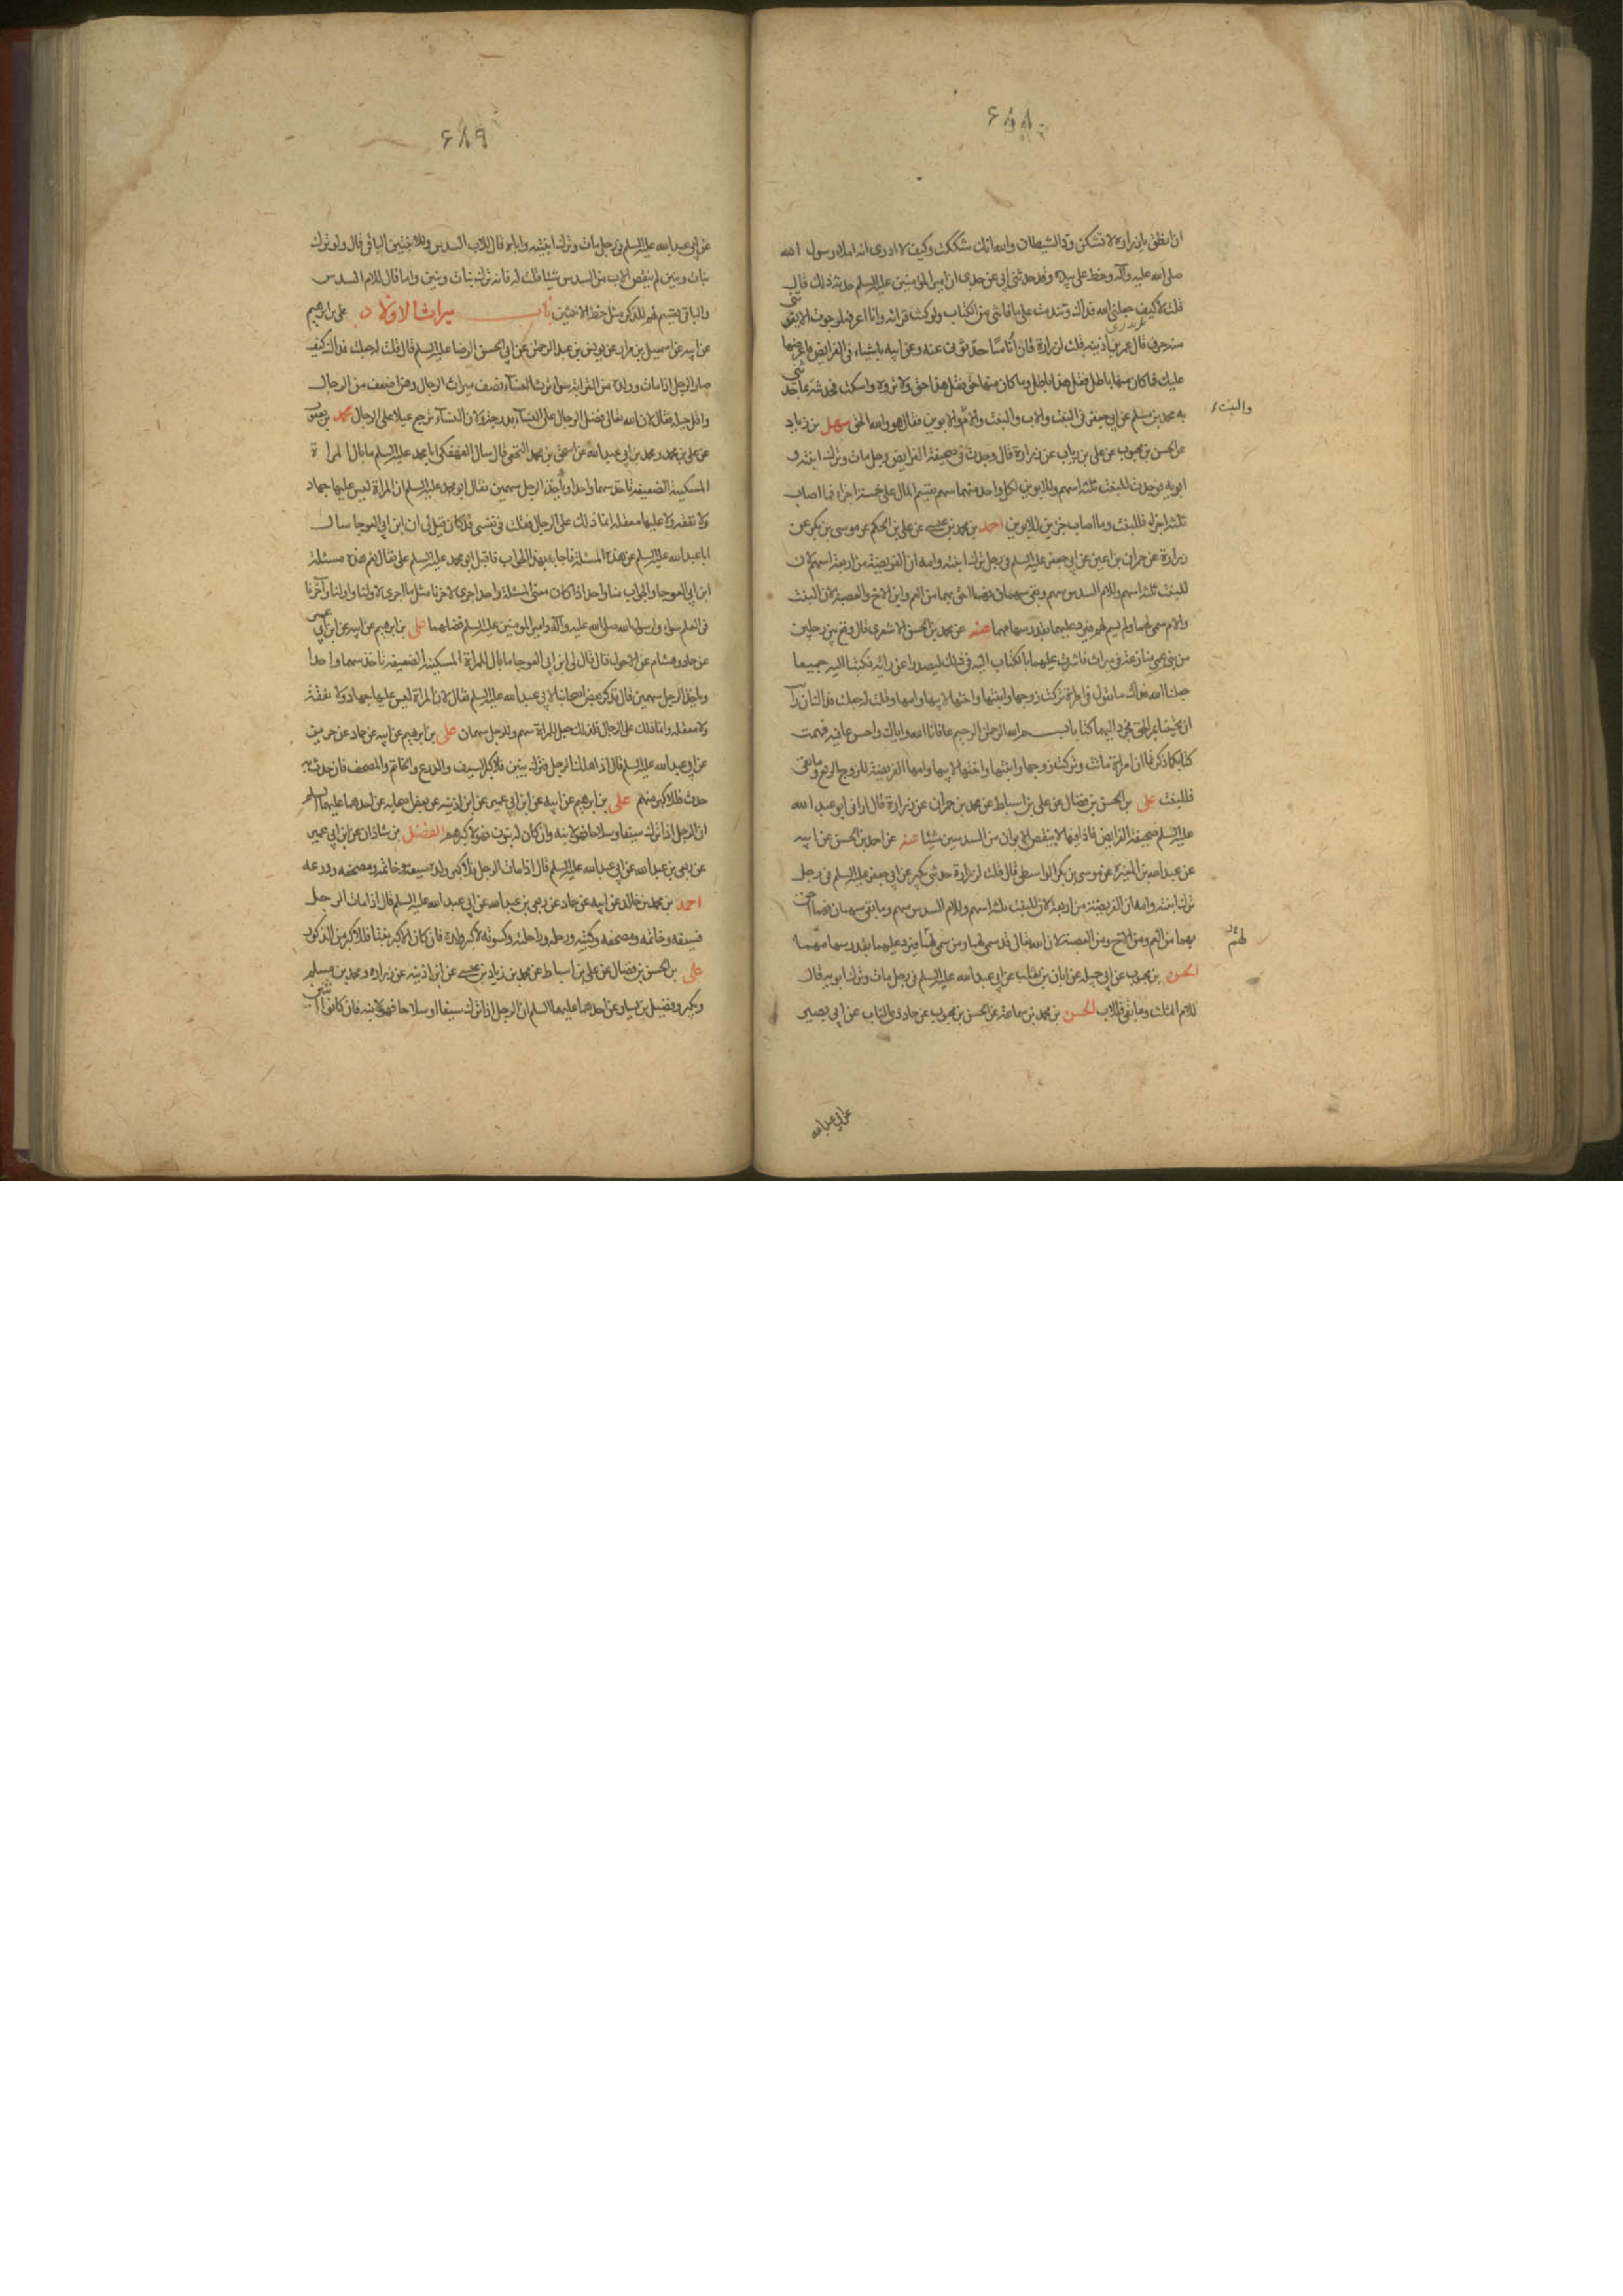 ۶۸۸
ان ينطق يا زرارة لا تشكن ود الشيطان والله انك شككت وكيف لا ادري انه املاء رسول الله
صلى الله عليه وآله وخط علي بيده وقد حدثني ابي عن جدي ان امير المؤمنين عليه السلم حدثه ذلك قال
قلت لا كيف جعلني الله فداك وتندمت على ما فاتني من الكتاب ولو كنت قرأته وانا اعرفه لرجوت ان لا يفوتني
منه حرف قال عمر بن اذينه قلت لزرارة فان أناسا حدثوني عنه وعن ابيه باشياء في الفرايض فاعرضها
عليك فما كان منها باطل فقل هذا باطل وما كان منها حق فقل هذا حق ولا تروه واسكت فحدثته بما حدثني
والبنت
به محمد بن مسلم عن ابي جعفر في البنت والاب والبنت والام والابوين فقال هو والله الحق سهل بن زياد
عن الحسن بن محبوب عن علي بن رياب عن زرارة قال وجدت في صحيفة الفرايض رجل مات وترك ابنته و
ابويه فوجدت للبنت ثلثه اسهم وللابوين لكل واحد منهما سهم يقسم المال على خمسة اجزاء فما اصاب
ثلثه اجزاء فللبنت وما اصاب جزئين للابوين احمد بن محمد بن عيسى عن علي بن الحكم عن موسى بن بكر عن
زرارة عن حمران بن اعين عن ابي جعفر عليه السلم في رجل ترك ابنته وامه ان الفريضة من اربعة اسهم لان
للبنت ثلثه اسهم وللام السدس سهم وبقي سهمان فهما احق بهما من العم وابن الاخ والعصبة لان البنت
والام سمى لهما ولم يسم لهم فيرد عليهما بقدر سهامهما عنه عن محمد بن الحسن الاشعري قال وقع بين رجلين
من بني عمي منازعة في ميراث فاشرت عليهما بالكتاب اليه في ذلك ليصدرا عن رأيه فكتبا اليه جميعا
جعلنا الله فداك ما تقول في امراة تركت زوجها وابنتها واختها لابيها وامها وقلت له جعلت فداك ان رأيت
ان تجيبنا بمر الحق فخرج اليهما كتابا بسم الله الرحمن الرحيم عافانا الله واياك واحسن عافية فهمت
كتابكما ذكرتما ان امراة ماتت وتركت زوجها وابنتها واختها لابيها وامها الفريضة للزوج الربع وما بقي
فللبنت علي بن الحسن بن فضال عن علي بن اسباط عن محمد بن حمران عن زرارة قال اراني ابو عبد الله
عليه السلم صحيفة الفرايض فاذا فيها لا ينقص الابوان من السدسين شيئا عنه عن احمد بن الحسن عن ابيه
عن عبد الله بن المغيرة عن موسى بن بكر الواسطي قال قلت لزرارة حدثني بكير عن ابي جعفر عليه السلم في رجل
ترك ابنته وامه ان الفريضة من اربعة لان للبنت ثلثه اسهم وللام السدس سهم وما بقي سهمان فهما احق
لهم
بهما من العم ومن الاخ ومن العصبة لان الله تعالى قد سمى لهما ومن سمى لهما فيرد عليهما بقدر سهامهما
الحسن بن محبوب عن ابي جميله عن ابان بن تغلب عن ابي عبد الله عليه السلم في رجل مات وترك ابويه قال
للام الثلث وما بقي فللاب الحسن بن محمد بن سماعة عن الحسن بن محبوب عن حماد ذي الناب عن ابي بصير
عن ابي عبد الله
۶۸۹
عن ابي عبد الله عليه السلم في رجل مات وترك ابنتيه واباه قال للاب السدس وللابنتين الباقي قال ولو ترك
بنات وبنين لم ينقص الاب من السدس شيئا قلت له فانه ترك بنات وبنين واما قال للام السدس
والباقي يقسم لهم للذكر مثل حظ الانثيين باب ميراث الاولاد علي بن ابرهيم
عن ابيه عن اسمعيل بن مرار عن يونس بن عبد الرحمن عن ابي الحسن الرضا عليه السلم قال قلت له جعلت فداك كيف
صار الرجل اذا مات وولده من القرابة سواء ترث النساء نصف ميراث الرجال وهن اضعف من الرجال
واقل حيلة فقال لان الله تعالى فضل الرجال على النساء بدرجة ولان النساء ترجع عيالا على الرجال محمد بن يعقوب
عن علي بن محمد ومحمد بن ابي عبد الله عن اسحق بن محمد النخعي قال سال الفهفكي ابا محمد عليه السلم ما بال المراة
المسكينة الضعيفه تاخذ سهما واحدا وياخذ الرجل سهمين فقال ابو محمد عليه السلم ان المراة ليس عليها جهاد
ولا نفقة ولا عليها معقله انما ذلك على الرجال فقلت في نفسي قد كان قيل لي ان ابن ابي العوجا سال
ابا عبد الله عليه السلم عن هذه المسئلة فاجابه بهذا الجواب فاقبل ابو محمد عليه السلم علي فقال نعم هذه مسئلة
ابن ابي العوجا والجواب منا واحد اذا كان معنى المسئلة واحدا جرى لاخرنا مثل ما جرى لاولنا واولنا وآخرنا
في العلم سواء ولرسول الله صلى الله عليه وآله وامير المؤمنين عليه السلم فضلهما علي بن ابرهيم عن ابيه عن ابن ابي عمير
عن حماد وهشام عن الاحول قال قال لي ابن ابي العوجا ما بال المراة المسكينة الضعيفه تاخذ سهما واحدا
وياخذ الرجل سهمين قال فذكر بعض اصحابنا لابي عبد الله عليه السلم فقال لان المراة ليس عليها جهاد ولا نفقة
ولا معقله وانما ذلك على الرجال فلذلك جعل للمراة سهم وللرجل سهمان علي بن ابرهيم عن ابيه عن حماد عن حريز
عن ابي عبد الله عليه السلم قال اذا هلك الرجل فترك بنين فللاكبر السيف والدرع والخاتم والمصحف فان حدث به
حدث فللاكبر منهم علي بن ابرهيم عن ابيه عن ابن ابي عمير عن ابن اذينه عن بعض اصحابه عن احدهما عليهما السلم
ان الرجل اذا ترك سيفا وسلاحا فهو لابنه وان كان له بنون فهو لاكبرهم الفضل بن شاذان عن ابن ابي عمير
عن ربعي بن عبد الله عن ابي عبد الله عليه السلم قال اذا مات الرجل فلاكبر ولده سيفه وخاتمه ومصحفه ودرعه
احمد بن محمد بن خالد عن ابيه عن حماد عن ربعي بن عبد الله عن ابي عبد الله عليه السلم قال اذا مات الرجل
فسيفه وخاتمه ومصحفه وكتبه ورحله وراحلته وكسوته لاكبر ولده فان كان الاكبر بنتا فللاكبر من الذكور
علي بن الحسن بن فضال عن علي بن اسباط عن محمد بن زياد بن عيسى عن ابن اذينه عن زراره ومحمد بن مسلم
وبكير وفضيل بن يسار عن احدهما عليهما السلم ان الرجل اذا ترك سيفا او سلاحا فهو لابنه فان كانوا اثنين